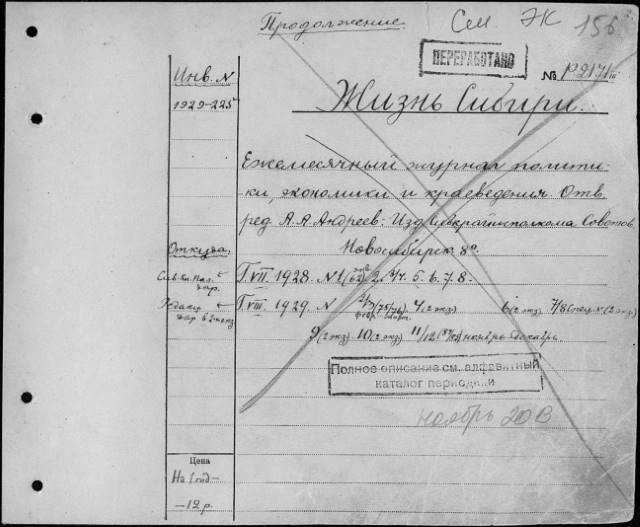 Продолжение
Сем. ЭК 156
ПЕРЕРАБОТАНО
Инв. N
№ P2171 III
1929-225
Жизнь Сибири.
Ежемесячный журнал полити-
ки, экономики и краеведения. Отв.
ред. А.А. Андреев. Изд. Сибкрайисполкома Советов.
Новосибирск 8º.
Откуда
T. VII. 1928. N 1 (62) 2. 3/4. 5. 6. 7. 8.
T. VIII. 1929. N 2/3 (75/76) 4 (2 экз) 6 (2 экз) 7/8 Спец. N (2 экз)
дар
9 (2 экз) 10 (2 экз) 11/12 ноябрь декабрь.
Полное описание см. алфавитный
каталог периодики
ноябрь 20 В
Цена
На 1 год
—12 р.